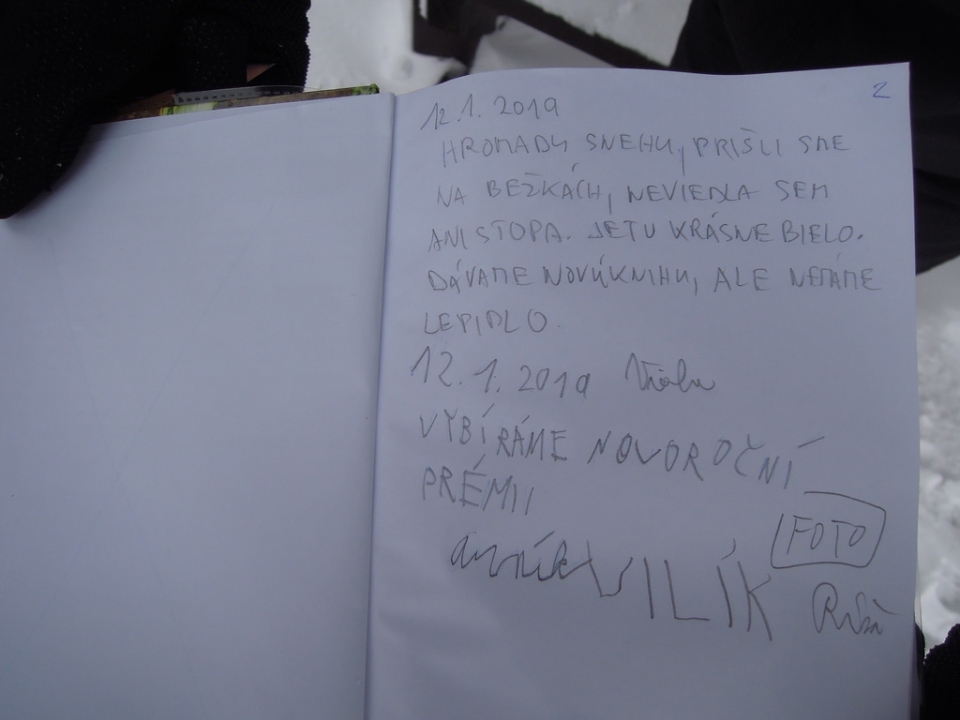 2
12.1.2019
HROMADY SNEHU, PRIŠLI SME
NA BEŽKÁCH, NEVIEDLA SEM
ANI STOPA. JE TU KRÁSNE BIELO.
DÁVAME NOVÚ KNIHU, ALE NEMÁME
LEPIDLO.
12.1.2019
VYBÍRÁME NOVOROČNÍ
PRÉMII
FOTO
VILÍK